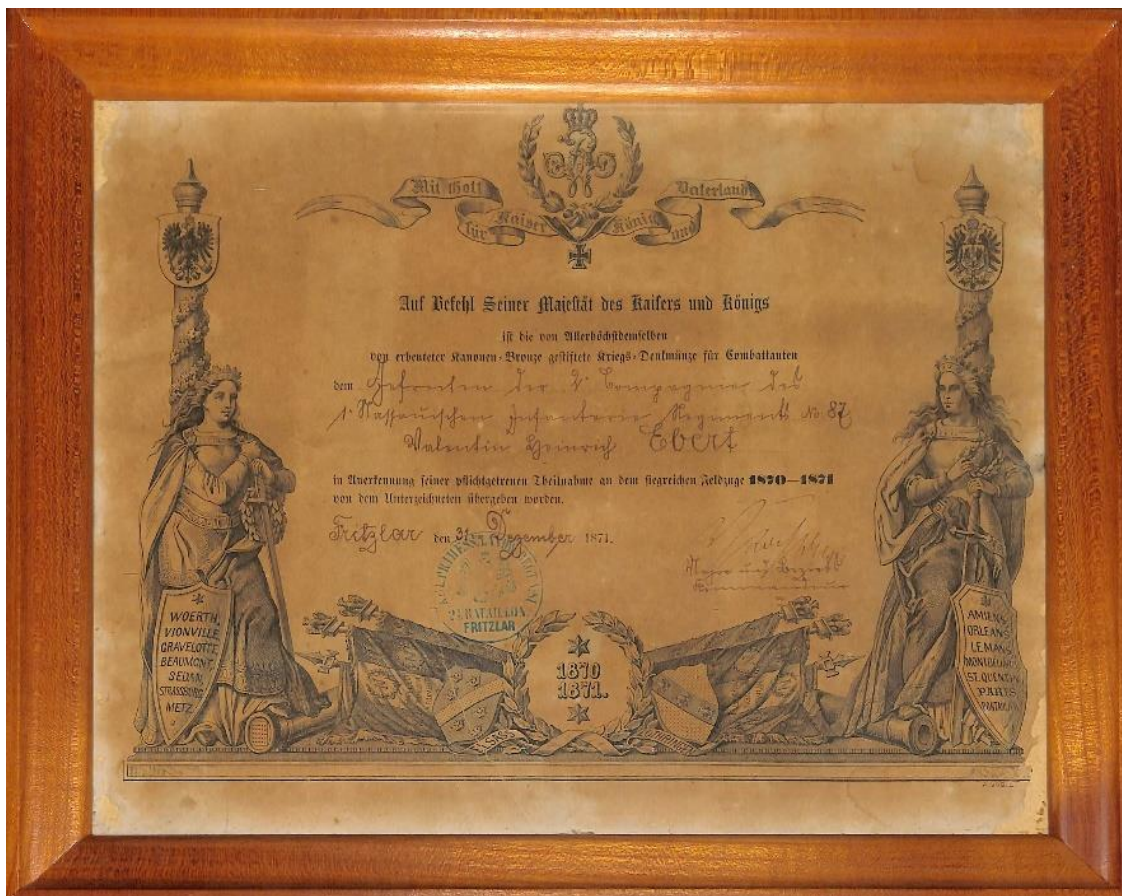 Mit Gott Vaterland
für Kaiser König und
Auf Befehl Seiner Majestät des Kaisers und Königs
ist die von Allerhöchstdemselben
von erbeuteter Kanonen-Bronze gestiftete Kriegs-Denkmünze für Combattanten
dem Gefreiten der 2. Compagnie des
1. Nassauischen Infanterie Regiments No 87
Valentin Heinrich Ebert
in Anerkennung seiner pflichtgetreuen Theilnahme an dem siegreichen Feldzuge 1870—1871
von dem Unterzeichneten übergeben worden.
Fritzlar den 31 Dezember 1871.
Major und Bezirks
2. BATAILLON
FRITZLAR
WOERTH
VIONVILLE
GRAVELOTTE
BEAUMONT
SEDAN
STRASSBURG
METZ
1870
1871.
AMIENS
ORLEANS
LE MANS
ST. QUENTIN
PARIS